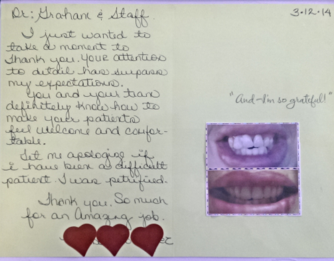 Dr. Graham & Staff
I just wanted to
take a moment to
thank you. Your attention
to detail has surpass
my expectations.
You and your team
definitely know how to
make your patients
feel welcome and comfor-
table.
Let me apologize if
I have been a difficult
patient. I was petrified.
Thank you. So much
for an Amazing job.
3-12-14
"And-I'm so grateful!"